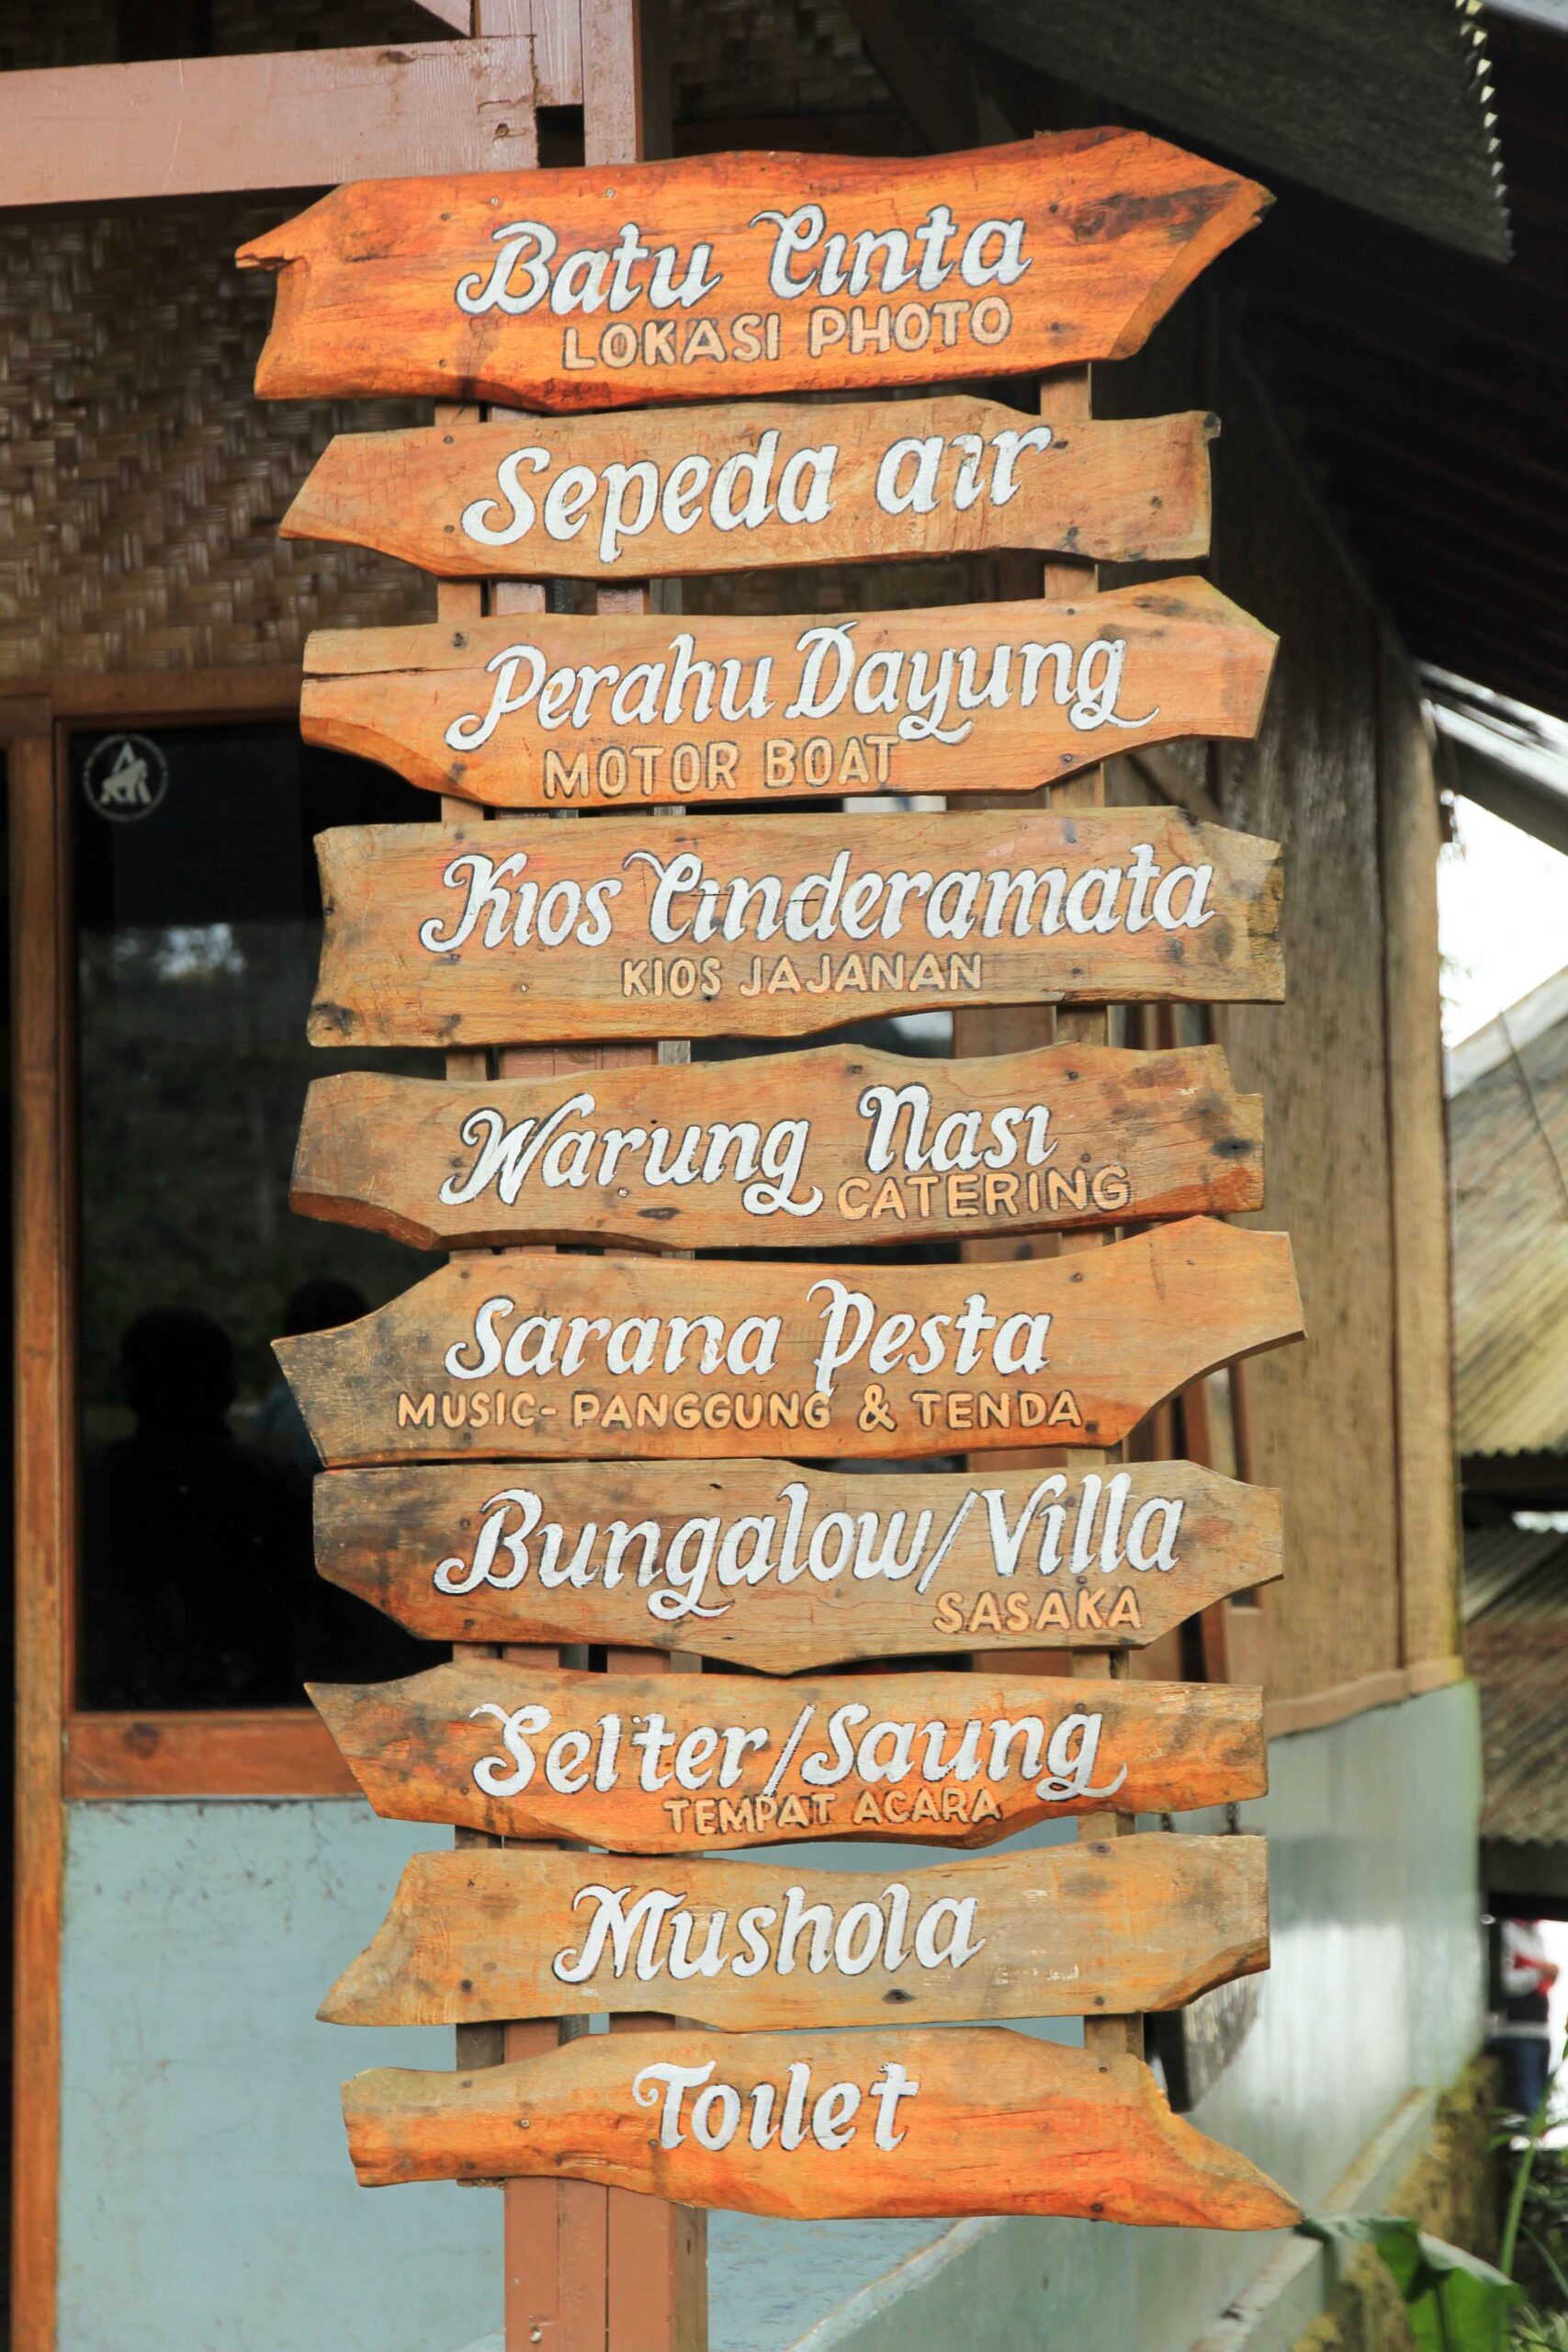 Batu Cinta
LOKASI PHOTO
Sepeda air
Perahu Dayung
MOTOR BOAT
Kios Cinderamata
KIOS JAJANAN
Warung Nasi
CATERING
Sarana Pesta
MUSIC- PANGGUNG & TENDA
Bungalow/Villa
SASAKA
Selter/Saung
TEMPAT ACARA
Mushola
Toilet